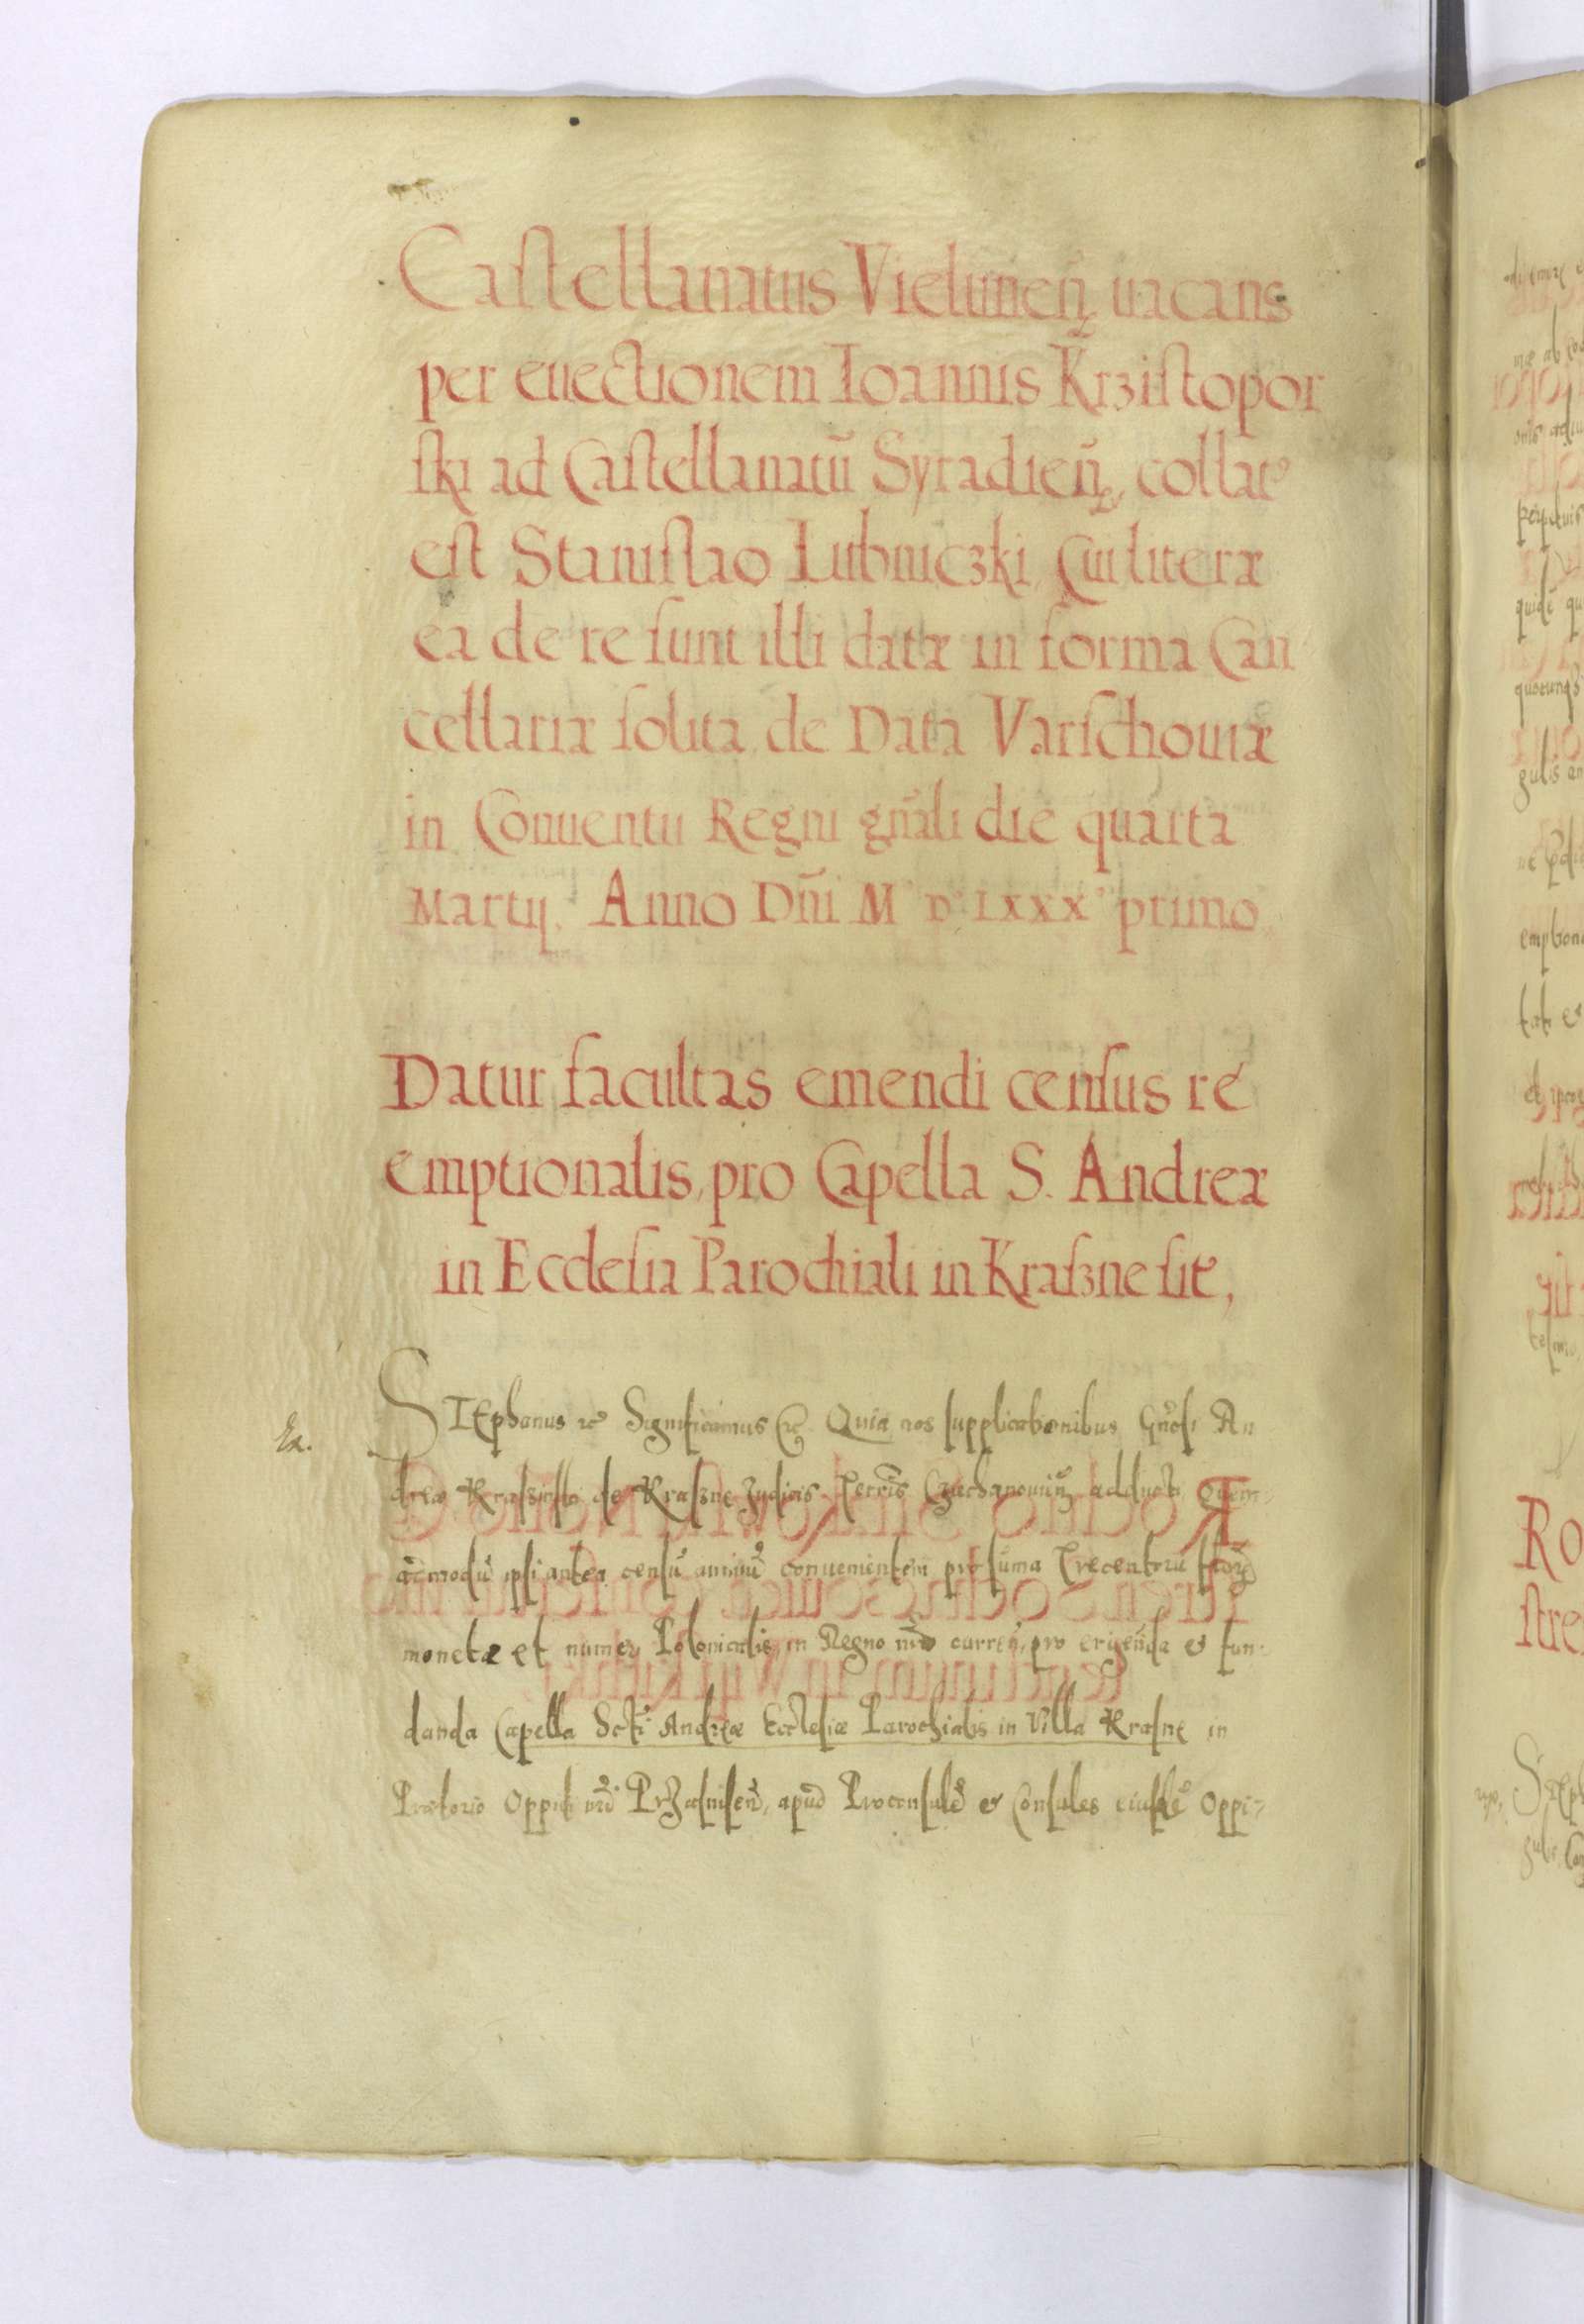 Castellanatus Vielunen̄ uacans
per euectionem Ioannis Krziſtopor
ſki ad Caſtellanatū Syradien̄, collat9
eſt Staniſlao Lubniczki, Cui literæ
ea de re ſunt illi datæ in forma Can
cellariæ ſolita, de Data Varſchouiæ
in Conuentu Regni gn̄ali die quarta
Martij. Anno Dn̄i M D LXXX primo
Datur facultas emendi cenſus re
emptionalis, pro Capella S. Andreæ
in Eccleſia Parochiali in Kraſzne ſit̄,
Ex.
STEphanus etc Significamus etc Quia nos ſupplicationibus Gn̄oſi An
dreæ Kraſzinſki de Kraſzne Judicis Terrīs Czechanouien̄ adducti Quem
admodū ipſi antea cenſū annuū conuenientem pro ſuma Trecentorū flor
monetæ et numeri Polonicalis, in Regno nr̄o curren̄, pro erigenda et fun
danda Capella Scti Andreæ Eccleſiæ Parochialis in Villa Kraſne in
Prætorio Oppidi nr̄i Przaſniſen̄, apud Proconſulē et Conſules eiuſdē Oppi